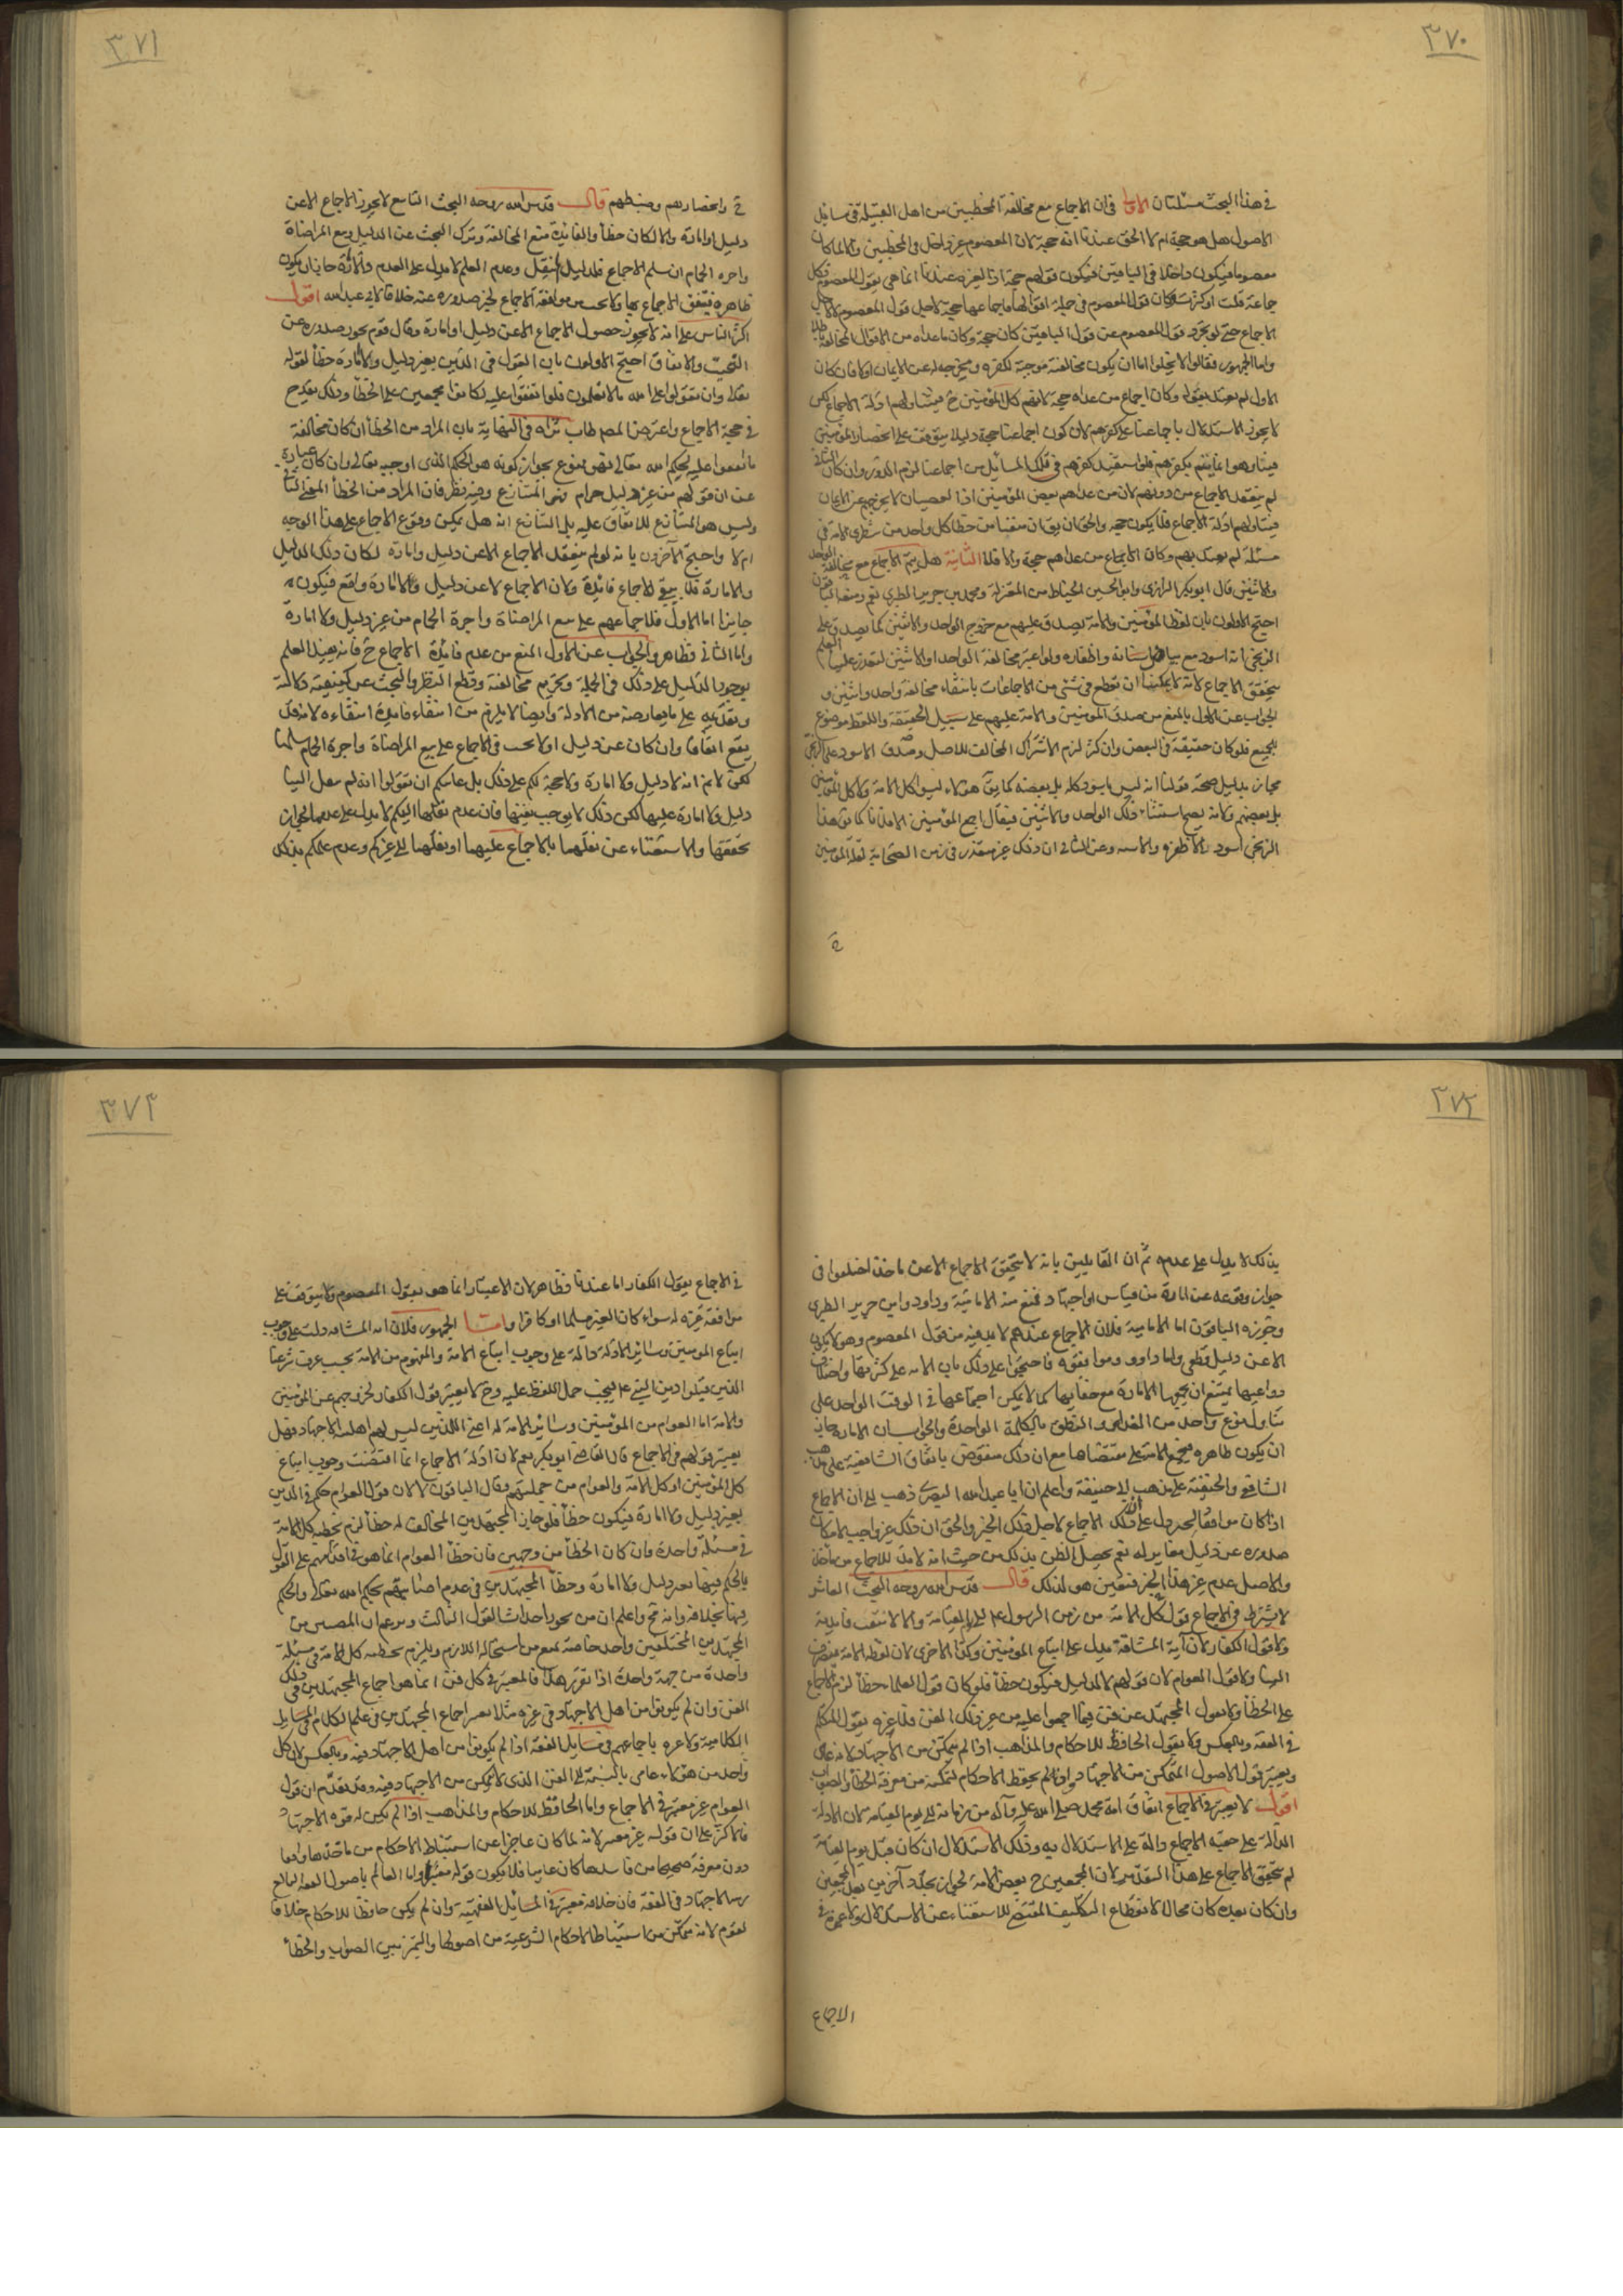 ٣٧٠
في هذا البحث مسئلتان الاولى في ان الاجماع مع مخالفة المخطئين من اهل القبلة في مسائل
الاصول هل هو حجة ام لا الحق عندنا انه حجة لان المعصوم غير داخل في المخطئين والا لما كان
معصوما فيكون داخلا في الباقين فيكون قولهم حجة اذ العبرة عندنا انما هي بقول المعصوم فكل
جماعة قلت او كثرت وكان قول المعصوم في جملة اقوالها فاجماعها حجة لاجل قول المعصوم لا لاجل
الاجماع حتى لو تجرد قول المعصوم عن قول الباقين كان حجة وكان ما عداه من الاقوال المخالفة باطلا
واما الجمهور فقالوا لا يخلوا اما ان يكون مخالفته موجبة لكفره ويخرجه عن الايمان اولا فان كان
الاول لم يعتد بقوله وكان اجماع من عداه حجة لانهم كل المؤمنين ح فيتناولهم ادلة الاجماع لكن
لا يجوز الاستدلال باجماعنا على كفرهم لان كون اجماعنا حجة دليلا يتوقف على انحصار المؤمنين
فينا وهو انما يتم بكفرهم فلو استفيد كفرهم في تلك المسائل من اجماعنا لزم الدور وان كان الثاني
لم ينعقد الاجماع من دونهم لان من عداهم بعض المؤمنين اذ العصيان لا يخرج عن الايمان
فيتناولهم ادلة الاجماع فلا يكون حجة والحق ان يقال ان منعنا من خطأ كل واحد من شطري الامة في
مسئلة لم يعتد بهم وكان الاجماع من عداهم حجة والا فلا الثانية هل يتم الاجماع مع مخالفة الواحد
والاثنين قال ابو بكر الرازي وابو الحسين الخياط من المعتزلة ومحمد بن جرير الطبري نعم ومنعه الباقون
احتج الاولون بان لفظ المؤمنين والامة يصدق عليهم مع خروج الواحد والاثنين كما يصدق على
الزنجي انه اسود مع بياض اسنانه واظفاره ولو اعتبر مخالفة الواحد او الاثنين لتعذر علينا العلم
بتحقق الاجماع لانه لا يمكننا ان نقطع في شئ من الاجماعات بانتفاء مخالفة واحد واثنين و
الجواب عن الاول بالمنع من صدق المؤمنين والامة عليهم على سبيل الحقيقة واللفظ موضوع
للجميع فلو كان حقيقة في البعض وان كثر لزم الاشتراك المخالف للاصل وصدق الاسود على الزنجي
مجاز بدليل صحة قولنا انه ليس باسود كله بل بعضه كما يق هؤلاء ليسوا كل الامة ولا كل المؤمنين
بل بعضهم ولانه يصح استثناء ذلك الواحد والاثنين فيقال اجمع المؤمنين الا فلانا كما يق هذا
الزنجي اسود الا ظفره والا سنه وعن الثاني ان ذلك غير متعذر في زمن الصحابة لقلة المؤمنين
ح
٣٧١
ح وانحصارهم وضبطهم قال قدس الله روحه البحث التاسع لا يجوز الاجماع الا عن
دليل او امارة والا لكان خطأ والفائدة منع المخالفة وترك البحث عن الدليل وبيع المراضاة
واجرة الحمام ان سلم الاجماع فلدليل لم ينقل وعدم العلم لا يدل على العدم والامارة جاز ان يكون
ظاهرة فيتفق الاجماع بها ولا يحسب موافقة الاجماع لخبر صدوره عنه خلافا لابي عبد الله اقول
اكثر الناس على انه لا يجوز حصول الاجماع الا عن دليل او امارة وقال قوم يجوز صدوره عن
التبخيت والاتفاق احتج الاولون بان القول في الدين بغير دليل والا امارة خطأ لقوله
تعالى وان تقولوا على الله ما لا تعلمون فلو اتفقوا عليه لكانوا مجمعين على الخطأ وذلك يقدح
في حجية الاجماع واعترض المصـ طاب ثراه في النهاية بان المراد من الخطأ ان كان مخالفة
ما اتفقوا عليه لحكم الله تعالى فهو ممنوع بجواز كونه هو الحكم الذي اوجبه تعالى وان كان عبارة
عن ان قولهم من غير دليل حرام فهو المتنازع وفيه نظر فان المراد من الخطأ المعنى الثاني
وليس هو المتنازع للاتفاق عليه بل التنازع انه هل يمكن وقوع الاجماع على هذا الوجه
ام لا واحتج الآخرون بانه لو لم ينعقد الاجماع الا عن دليل وامارة لكان ذلك الدليل
والامارة فلا يبقى للاجماع فائدة ولان الاجماع لا عن دليل ولا امارة واقع فيكون
جايزا اما الاول فلاجماعهم على بيع المراضاة واجرة الحمام من غير دليل ولا امارة
واما الثاني فظاهر والجواب عن الاول المنع من عدم فائدة الاجماع ح فانه يفيد العلم
بوجود الدليل على ذلك في الجملة وتحريم مخالفته وقطع النظر والبحث عن كيفيته دلالته
وتقديمه على ما يعارضه من الادلة وايضا لا يلزم من انتفاء فائدة انتفاءه لانه قد
يقع اتفاقا وان كان عن دليل اولا يحسب في الاجماع على بيع المراضاة واجرة الحمام سلمنا
لكن لا نم انه لا دليل ولا امارة ولا حجة لكم على ذلك بل غايتكم ان تقولوا انه لم ينقل الينا
دليل ولا امارة عليها لكن ذلك لا يوجب نفيها فان عدم نقلها اليكم لا يدل على عدمها لجواز
تحققها والاستغناء عن نقلها بالاجماع عليها او نقلها الى غيركم وعدم علمكم بذلك
٣٧٢
بذلك لا يدل على عدمه ثم ان القايلين بانه لا يتحقق الاجماع الا عن ماخذ اختلفوا في
جواز وقوعه عن امارة من قياس او اجتهاد فمنع منه الامامية وداود وابن جرير الطبري
وجوزه الباقون اما الامامية فلان الاجماع عندهم لا بد فيه من قول المعصوم وهو لا يكون
الا عن دليل قطعي واما داود وموافقوه فاحتجوا على ذلك بان الامة على كثرتها واختلاف
دواعيها يمتنع ان يجمعها الامارة مع خفائها كما لا يمكن اجتماعها في الوقت الواحد على
تناول نوع واحد من الغذاء والنطق بالكلمة الواحدة والجواب ان الامارة جاز
ان يكون ظاهرة فيجتمع الامة على مقتضاها مع ان ذلك منقوض باتفاق الشافعية على مذهب
الشافعي والحنفية على مذهب ابي حنيفة واعلم ان ابا عبد الله البصري ذهب الى ان الاجماع
اذا كان موافقا لخبر دل على ان ذلك الاجماع لاجل ذلك الخبر والحق ان ذلك غير واجب لامكان
صدوره عن دليل مغاير له نعم يحصل الظن بذلك من حيث انه لا بد للاجماع من ماخذ
والاصل عدم غير هذا الخبر فتعين هو لذلك قال قدس الله روحه البحث العاشر
لا يشترط في الاجماع قول كل الامة من زمن الرسول ع الى يوم القيامة والا لانتفت فايدته
ولا قول الكفار لان آية المشاقة يدل على اتباع المؤمنين وكذا الاخرى لان لفظ الامة ينصرف
الينا ولا قول العوام لان قولهم لا لدليل فيكون خطأ فلو كان قول العلماء خطأ لزم الاجماع
على الخطأ ولا بقول المجتهد عن فن فيما اجمعوا عليه من غير ذلك الفن فلا عبرة بقول المتكلم
في الفقه وبالعكس ولا بقول الحافظ للاحكام والمذاهب اذا لم يتمكن من الاجتهاد لانه عامي
ويعتبر قول الاصولي المتمكن من الاجتهاد وان لم يحفظ الاحكام لتمكنه من معرفة الخطأ والصواب
اقول لا يعتبر في الاجماع اتفاق امة محمد صلى الله عليه وآله من زمانه الى يوم القيامة لان الادلة
الدالة على حجية الاجماع دالة على الاستدلال به وذلك الاستدلال ان كان قبل يوم القيامة
لم يتحقق الاجماع على هذا التقدير لان المجمعين ح بعض الامة لجواز تجدد آخرين بعد المجمعين
وان كان بعده كان محالا لانقطاع التكليف المقتضي للاستغناء عن الاستدلال ولا عبرة في
الاجماع
٣٧٣
في الاجماع بقول الكفار اما عندنا فظاهر لان الاعتبار انما هو بقول المعصوم ولا يتوقف على
موافقة غيره له سواء كان الغير مسلما او كافرا واما الجمهور فلان آية المشاقة دلت على وجوب
اتباع المؤمنين وسائر الادلة دالة على وجوب اتباع الامة والمفهوم من الامة بحسب عرف شرعنا
الذين قبلوا دين النبي ع فيجب حمل اللفظ عليه وح لا يعتبر قول الكفار لخروجهم عن المؤمنين
والامة اما العوام من المؤمنين وسائر الامة اعني الذين ليس لهم اهلية الاجتهاد فهل
يعتبر قولهم في الاجماع قال القاضي ابو بكر نعم لان ادلة الاجماع انما اقتضت وجوب اتباع
كل المؤمنين او كل الامة والعوام من جملتهم وقال الباقون لا لان قول العوام حكم في الدين
بغير دليل ولا امارة فيكون خطأ فلو جاز المجتهدين المخالف له خطأ لزم تخطئة كل الامة
في مسئلة واحدة وان كان الخطأ من وجهين فان خطأ العوام انما هو في اقدامهم على القول
بالحكم فيها بغير دليل ولا امارة وخطأ المجتهدين في عدم اصابتهم بحكم الله تعالى والحكم
فيها بخلافه وانه قبح واعلم ان من يجوز احداث القول الثالث ويزعم ان المصيب من
المجتهدين المختلفين واحد خاصة يمنع من استحالة اللازم ويلزم تخطئة كل الامة في مسئلة
واحدة من جهة واحدة اذا تقرر هذا فالمعتبر في كل فن انما هو اجماع المجتهدين في ذلك
الفن وان لم يكونوا من اهل الاجتهاد في غيره مثلا يعتبر اجماع المجتهدين في علم الكلام في المسايل
الكلامية ولا عبرة باجماعهم في مسايل الفقه اذا لم يكونوا من اهل الاجتهاد فيه وبالعكس لان كل
واحد من هؤلاء عامي بالنسبة الى الفن الذي لا يتمكن من الاجتهاد فيه وقد تقدم ان قول
العوام غير معتبر في الاجماع واما الحافظ للاحكام والمذاهب اذا لم يكن له قوة الاجتهاد
فالاكثر على ان قوله غير معتبر لانه لما كان عاجزا عن استنباط الاحكام من ماخذها وادلتها
دون معرفة صحيحها من فاسدها كان عاميا فلا يكون قوله معتبرا واما العالم باصول الفقه البالغ
رتبة الاجتهاد في الفقه فان خلافه معتبر في المسائل الفقهية وان لم يكن حافظا للاحكام خلافا
لقوم لانه متمكن من استنباط الاحكام الشرعية من اصولها والتميز بين الصواب والخطأ